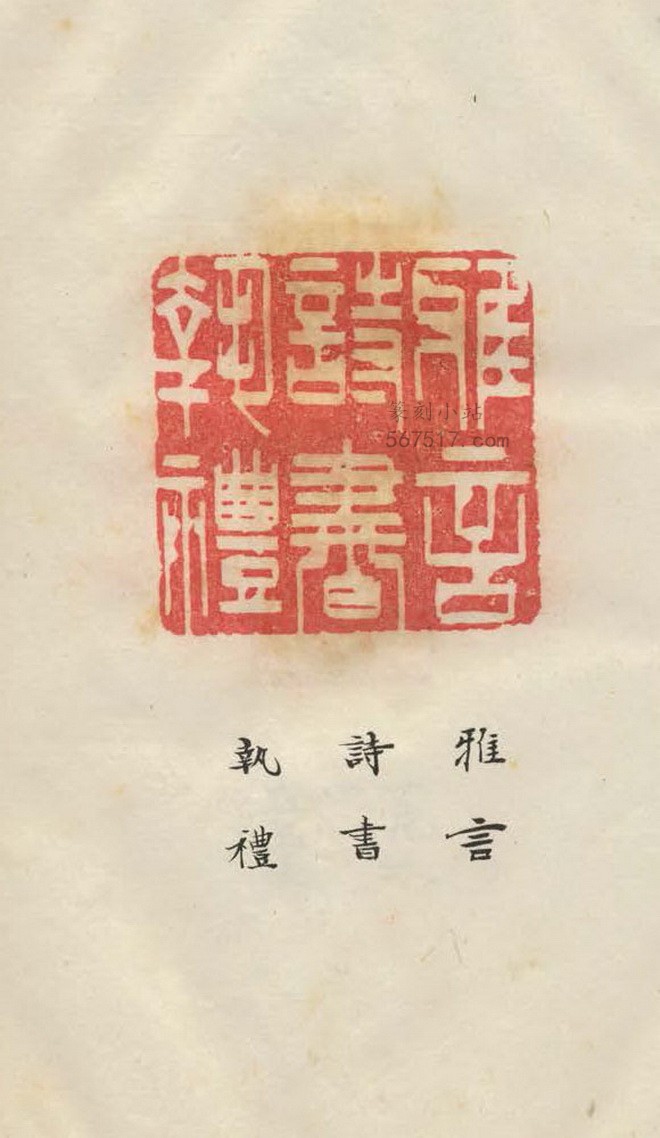 雅言
詩書
執禮
篆刻小站
567517.com
雅言
詩書
執禮